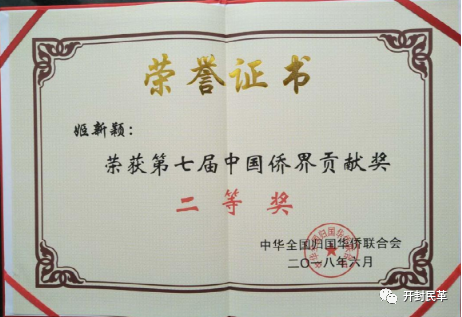 荣誉证书
姬新颖：
荣获第七届中国侨界贡献奖
二等奖
中华全国归国华侨联合会
二〇一八年六月
开封民革